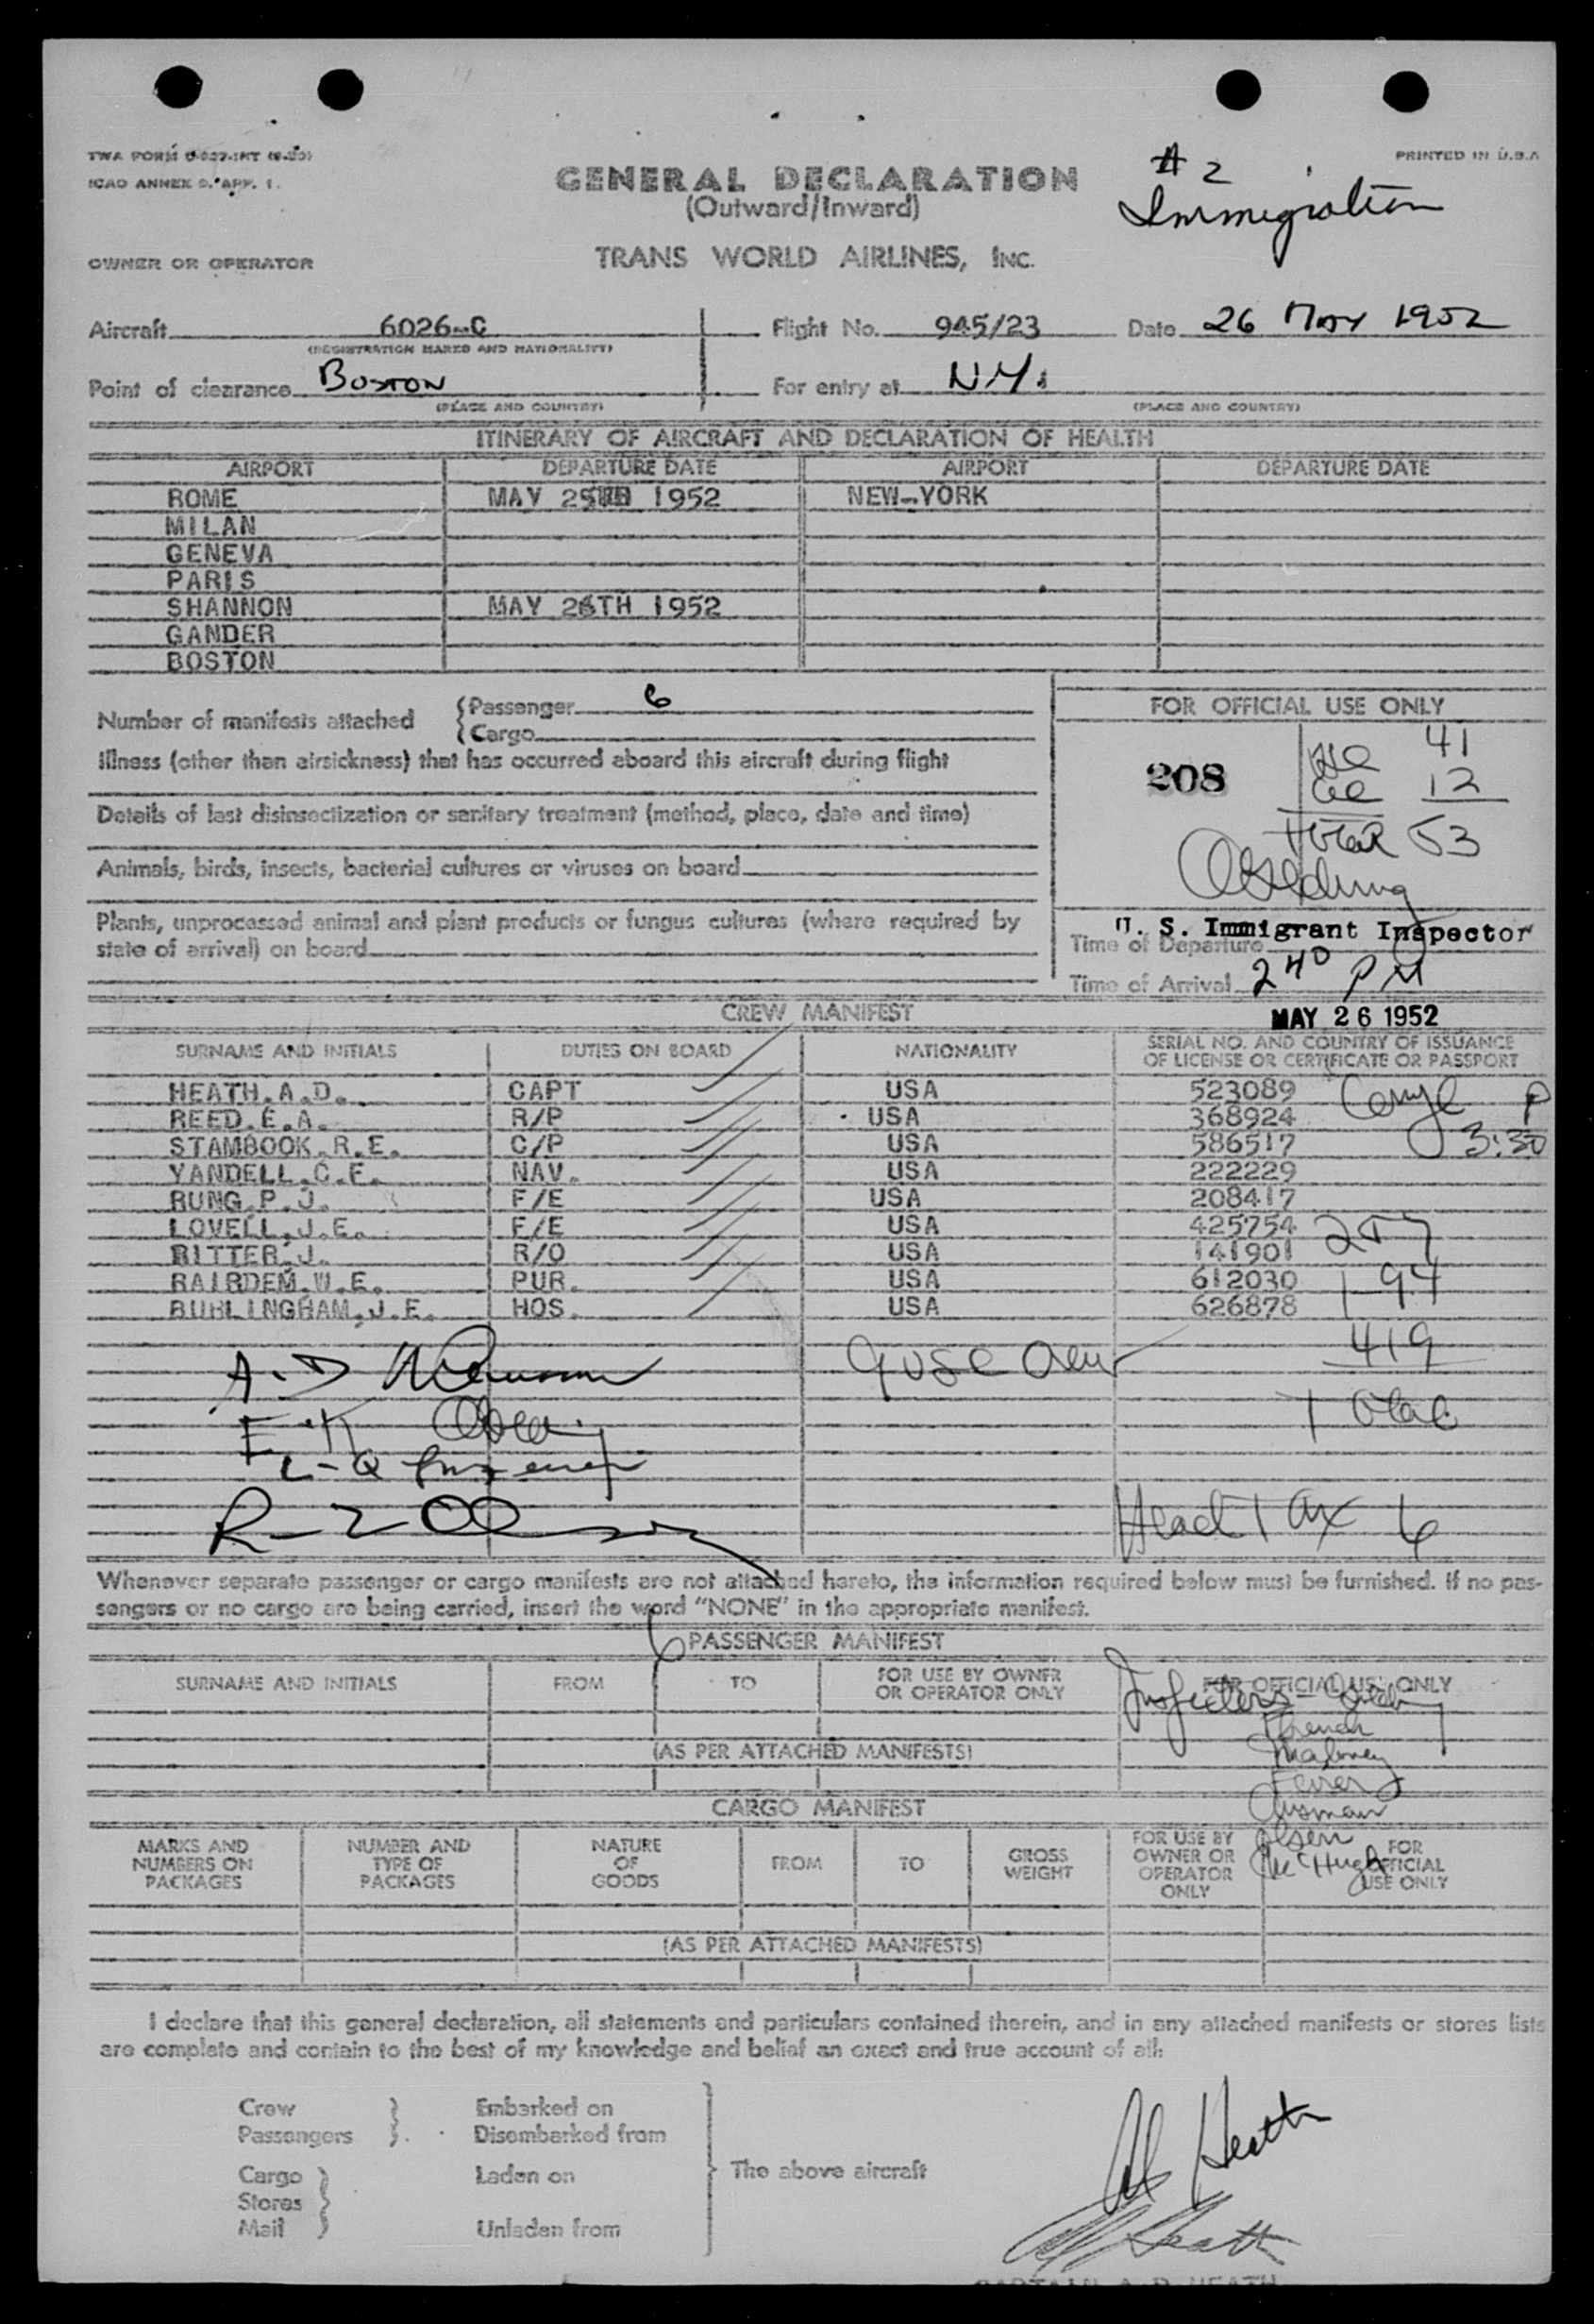 TWA FORM
ICAO ANNEX 9. APP. 1.
PRINTED IN U.S.A
# 2
Immigration
GENERAL DECLARATION
(Outward/Inward)
OWNER OR OPERATOR
TRANS WORLD AIRLINES, INC.
Aircraft 6026-C Flight No. 945/23 Date 26 May 1952
(REGISTRATION MARKS AND NATIONALITY)
Point of clearance BOSTON For entry at N.Y.
(PLACE AND COUNTRY) (PLACE AND COUNTRY)
ITINERARY OF AIRCRAFT AND DECLARATION OF HEALTH
AIRPORT DEPARTURE DATE AIRPORT DEPARTURE DATE
ROME MAY 1952 NEW-YORK
MILAN
GENEVA
PARIS
SHANNON MAY 26TH 1952
GANDER
BOSTON
Number of manifests attached
Passenger 6
Cargo
Illness (other than airsickness) that has occurred aboard this aircraft during flight
Details of last disinsectization or sanitary treatment (method, place, date and time)
Animals, birds, insects, bacterial cultures or viruses on board
Plants, unprocessed animal and plant products or fungus cultures (where required by
state of arrival) on board
FOR OFFICIAL USE ONLY
208
41
12
Total 53
U. S. Immigrant Inspector
Time of Departure
Time of Arrival 2 40 PM
MAY 26 1952
CREW MANIFEST
SURNAME AND INITIALS DUTIES ON BOARD NATIONALITY SERIAL NO. AND COUNTRY OF ISSUANCE
OF LICENSE OR CERTIFICATE OR PASSPORT
HEATH.A.D. CAPT USA 523089
REED.E.A. R/P USA 368924
STAMBOOK.R.E. C/P USA 586517 3:30
YANDELL.C.F. NAV. USA 222229
RUNG.P.J. F/E USA 208417
LOVELL.J.E. F/E USA 425754
RITTER.J. R/O USA 141901
BAIRDEM.W.E. PUR. USA 612030 194
BURLINGHAM.J.E. HOS. USA 626878
419
Total
Head Tax 6
Whenever separate passenger or cargo manifests are not attached hereto, the information required below must be furnished. If no pas-
sengers or no cargo are being carried, insert the word "NONE" in the appropriate manifest.
6
PASSENGER MANIFEST
SURNAME AND INITIALS FROM TO FOR USE BY OWNER
OR OPERATOR ONLY
FOR OFFICIAL USE ONLY
Inspectors
French
Maloney
(AS PER ATTACHED MANIFESTS)
CARGO MANIFEST
Olsen
McHugh
MARKS AND
NUMBERS ON
PACKAGES
NUMBER AND
TYPE OF
PACKAGES
NATURE
OF
GOODS
FROM
TO
GROSS
WEIGHT
FOR USE BY
OWNER OR
OPERATOR
ONLY
FOR
OFFICIAL
USE ONLY
(AS PER ATTACHED MANIFESTS)
I declare that this general declaration, all statements and particulars contained therein, and in any attached manifests or stores lists
are complete and contain to the best of my knowledge and belief an exact and true account of all:
Crew Embarked on
Passengers Disembarked from
Cargo Laden on
Stores
Mail Unladen from
The above aircraft
AD Heath
AD Heath
CAPTAIN A.D. HEATH